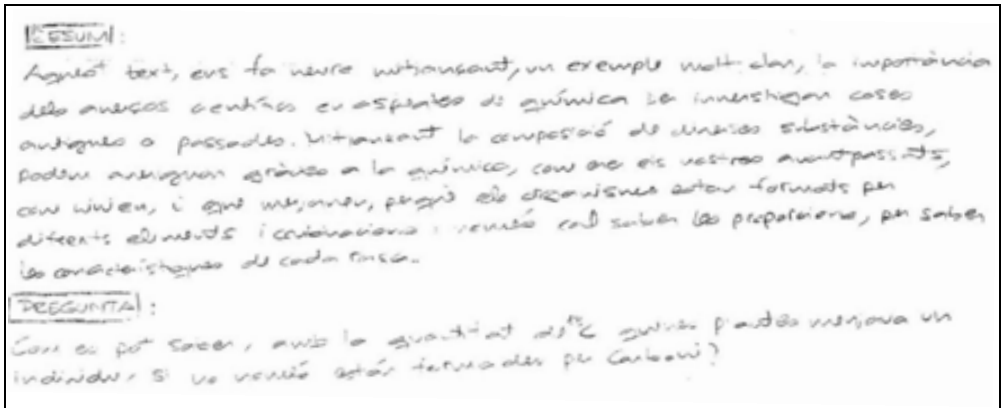 RESUM:
Aquest text, ens fa veure mitjançant, un exemple molt clar, la importància
dels avenços científics en aspectes de química i en investigar coses
antigues o passades. Mitjançant la composició de diverses substàncies,
podem averiguar gràcies a la química, com eren els nostres avantpassats,
com vivien, i què menjaven, perquè els organismes estan formats per
diferents elements i combinacions i només cal saber les proporcions, per saber
les característiques de cada cosa.
PREGUNTA:
Com es pot saber, amb la quantitat de C quines plantes menjava un
individu, si no només estàn formades per Carboni?